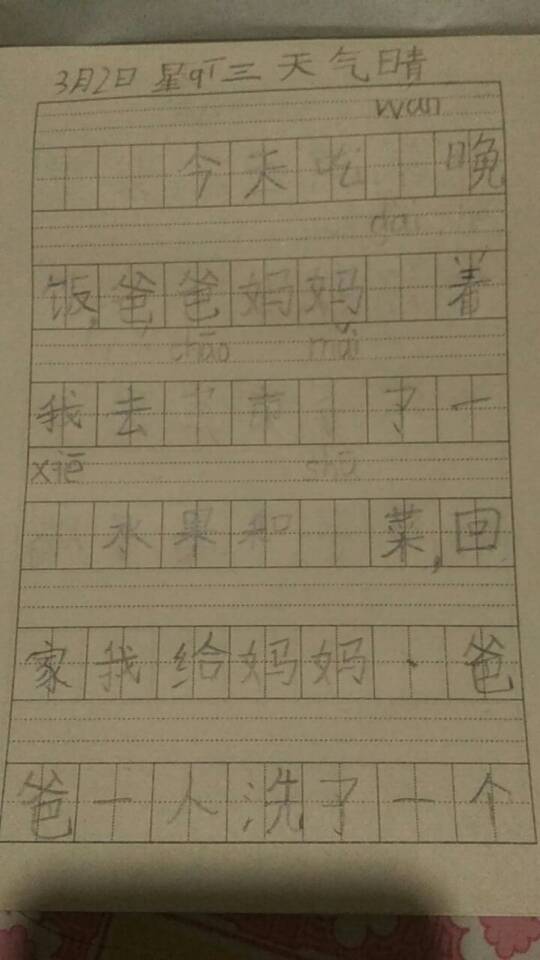 3月2日 星qī三 天气晴
wan
今天吃 晚
dai
饭,爸爸妈妈 着
chāo mǎi
我去 市 了一
xiē shū
水果和 菜,回
家我给妈妈、爸
爸一人洗了一个